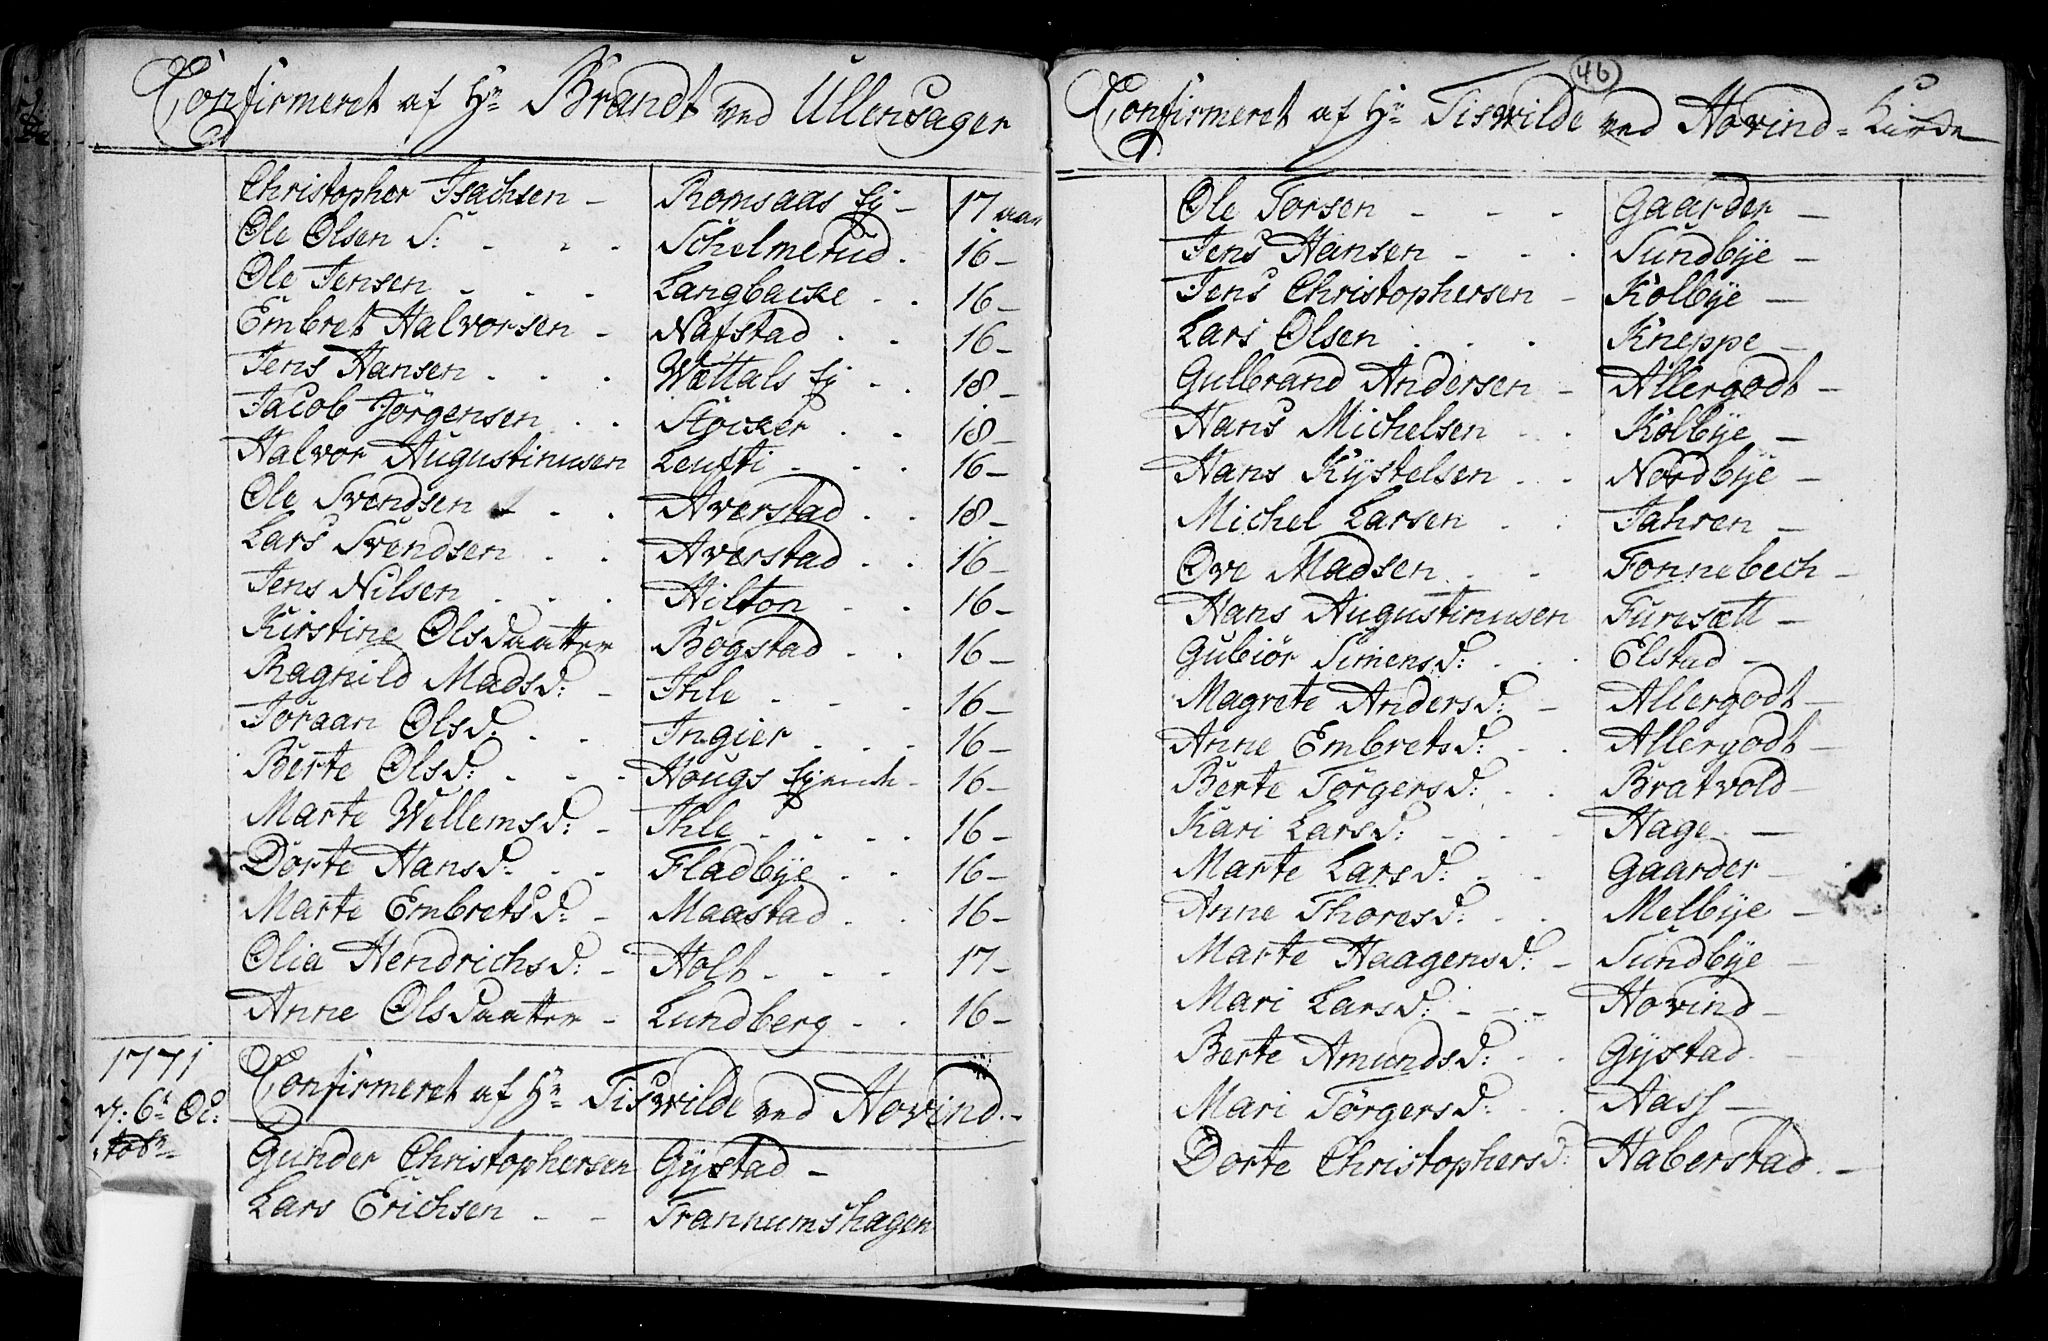 Confirmeret af Hr Brandt ved Ullensager
Christopher Isachsen - Romsaas Ey - 17 aar
Ole Olsen S: - - - Schelmerud . 16 -
Ole Jensen - - - Langbacke . . 16 -
Embret Halvorsen - Nafstad . . 16 -
Jens Hansen . . . Wættals Ey . . 18 -
Jacob Jørgensen . . Støcker . . 18 -
Halvor Augustinusen Leufti . . . 16 -
Ole Svendsen - . . Averstad . . 18 -
Lars Svendsen . . Averstad . . 16 -
Jens Nilsen . . . Hilton . . 16 -
Kirstine Olsdaatter Bogstad . . 16 -
Ragnild Madsd: - Ihle . . . 16 -
Joraan Olsd. . . Ingier . . . 16 -
Berte Olsd: . . . Hougs 16 -
Marte Wellemsd: - Ihle . . . . 16 -
Dorte Hansd: . . Fladbÿe . . 16 -
Marte Embretsd: - Maastad . . 16 -
Olia Hendrichsd: - Holt . . . 17 -
Anne Olsdaatter - Lundberg . . 16 -
1771
d: 6te Oc:
tobr
Confirmeret af Hr Tiswilde ved Hovind. -
Gunder Christophersen Gÿstad -
Lars Erichsen - - Trannumshagen
46
Confirmeret af Hr Tiswilde ved Hovind = Kirke
Ole Torsen - - - Gaarder -
Jens Hansen - - . Sundbÿe -
Jens Christophersen - Kolbÿe -
Lars Olsen . . . Kneppe -
Gulbrand Andersen - Allergodt -
Hans Michelsen . . Kolbÿe -
Hans Kÿstelsen . . Nordbÿe -
Michel Larsen . . Jahren -
Ove Madsen . - Fonnebech -
Hans Augustinusen Furusætt -
Gubiør Simensd: . . . Elstad -
Magrete Andersd: - Allergodt -
Anne Embretsd: . . Allergodt -
Berte Tørgersd: . . Bratvold -
Kari Larsd: - - - Hage. -
Marte Larsd: - - Gaarder -
Anne Thoresd: . . Melbÿe -
Marte Haagensd: - Sundbÿe -
Mari Larsd: - - - Hovind -
Berte Amundsd: . . Gÿstad. -
Mari Tørgersd: . . Aass -
Dorte Christophersd: Haberstad. -